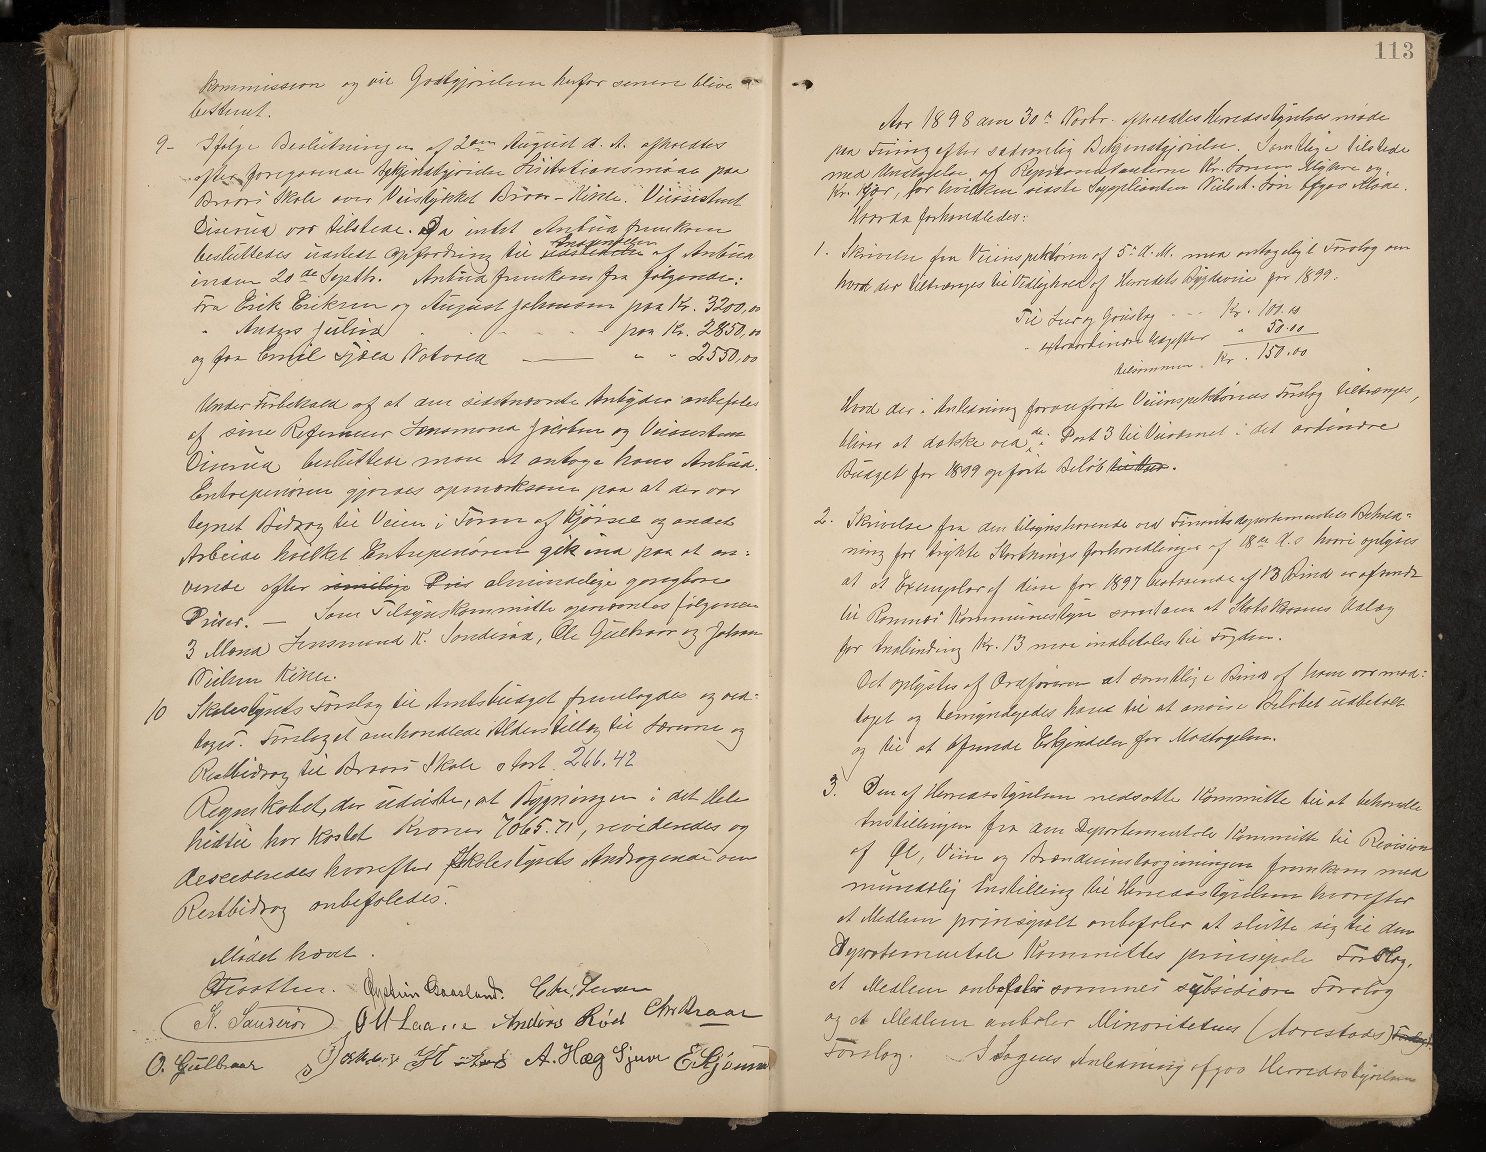 Kommission og vil Godtgjørelsen herfor senere blive
bestemt.
9- Ifølge Beslutningen af 2den August d. A. afholdtes
efter foregaaende Bekjendtgjørelse Lisitationsmøde paa
Braarø Skole over Veistykket Braar-Kirke. Veiassistent
Diserud var tilstede. Da intet Anbud fremkom
besluttedes udstedt Opfordring til Indsendelse af Anbud
inden 20de Septbr. Anbud fremkom fra følgende:
Fra Erik Eriksen og August Johansen paa Kr. 3200,00
" Anders Julius paa Kr. 2850,00
og fra Emil Fjeld Notodden " " 2550,00
Under Forbehold af at den sidstnævnte Anbyder anbefales
af sine Referencer Lensmand Jacobsen og Veiassistent
Diserud besluttede man at antage hans Anbud.
Entreprenøren gjordes opmærksom paa at der var
tegnet Bidrag til Veien i Form af Kjørsel og andet
Arbeide hvilket Entreprenøren gik ind paa at an-
vende efter rimelige Pris almindelige gangbare
Priser. — Som Tilsynskommitte opnævntes følgende
3 Mænd Lensmand K. Sanderød, Ole Gulbraar og Johan
Nielsen Kirke.
10 Skolestyrets Forslag til Amtsbudget fremlagdes og ved-
toges. Forslaget omhandlede Alderstillæg til Lærerne og
Restbidrag til Braarø Skole stort 266.42
Regnskabet, der udviste, at Bygningen i det Hele
hidtil har kostet Kroner 7065.71, revideredes og
desideredes hvorefter Skolestyrets Andragende om
Restbidrag anbefaledes.
Mødet hævet.
Øystein Gaasland. Chr. Jensen
K. Sanderød O M Laane Anders Rød Chr Braar
O. Gulbraar A. Hæg Sjuve E. Skjønne
113
Aar 1898 den 30te Novbr. afholdtes Herredsstyrelses møde
paa Furing efter sædvanlig Bekjendtgjørelse. Samtlige tilstede
med Undtagelse af Repræsentanterne Kr. Jorem Myhre og
Kr. Kjær, for hvilken sidste Suppleanten Niels A. Lien afgav Møde.
Hvorda forhandledes:
1. Skrivelse fra Veiinspektøren af 5te d. M. med vedlagt Forslag om
hvad der tiltrænges til Vedligehold af Herredets Bygdeveie for 1899.
Til Leer og Gruslag Kr. 100.00
" extraordinære Udgifter " 50.00
tilsammen Kr. 150.00
Hvad der i Anledning foranførte Veiinspektørens Forslag tiltrænges,
bliver at dække ved de i Post 3 til Veivæsnet i det ordinære
Budget for 1899 opførte Beløb.
2. Skrivelse fra den tilsynshavende ved Finantsdepartementets Behold-
ning for trykte Stortings forhandlinger af 18de d. s hvori oplyses
at et Exemplar af disse for 1897 bestaaende af 13 Bind er afsendt
til Ramnæs Kommunestyre samt om at Statskassens Udlæg
for Indbinding Kr. 13 maa indbetales til Fogden.
Det oplystes af Ordføreren at samtlige Bind af ham var mod-
taget og bemyndigedes han til at anvise Beløbet udbetalt
og til at afsende Erkjendelse for Modtagelsen.
3. Den af Herredsstyrelsen nedsatte Kommitte til at behandle
Indstillingen fra den Departementale Kommitte til Revision
af Øl, Viin og Brændevinslovgivningen fremkom med
mundtlig Indstilling til Herredsstyrelsen hvorefter
et Medlem prinsipalt anbefaler at slutte sig til den
Departementale Kommittes prinsipale Forslag,
et Medlem anbefaler sammes subsidiære Forslag
og et Medlem anbfaler Minoritetens (Aarestads)
Forslag. I Sagens Anledning afgav Herredsstyrelsen